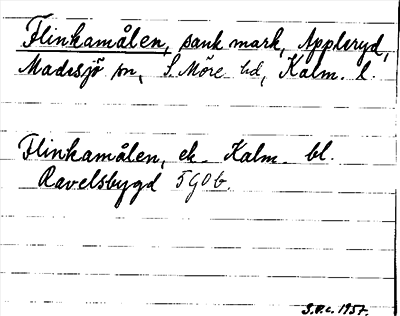 Flinkamålen, sank mark, Appleryd,
Madesjö sn, S. Möre hd, Kalm. l.
Flinkamålen, ek. Kalm. bl.
Ravelsbygd 5G0b.
S.P.c. 1957.